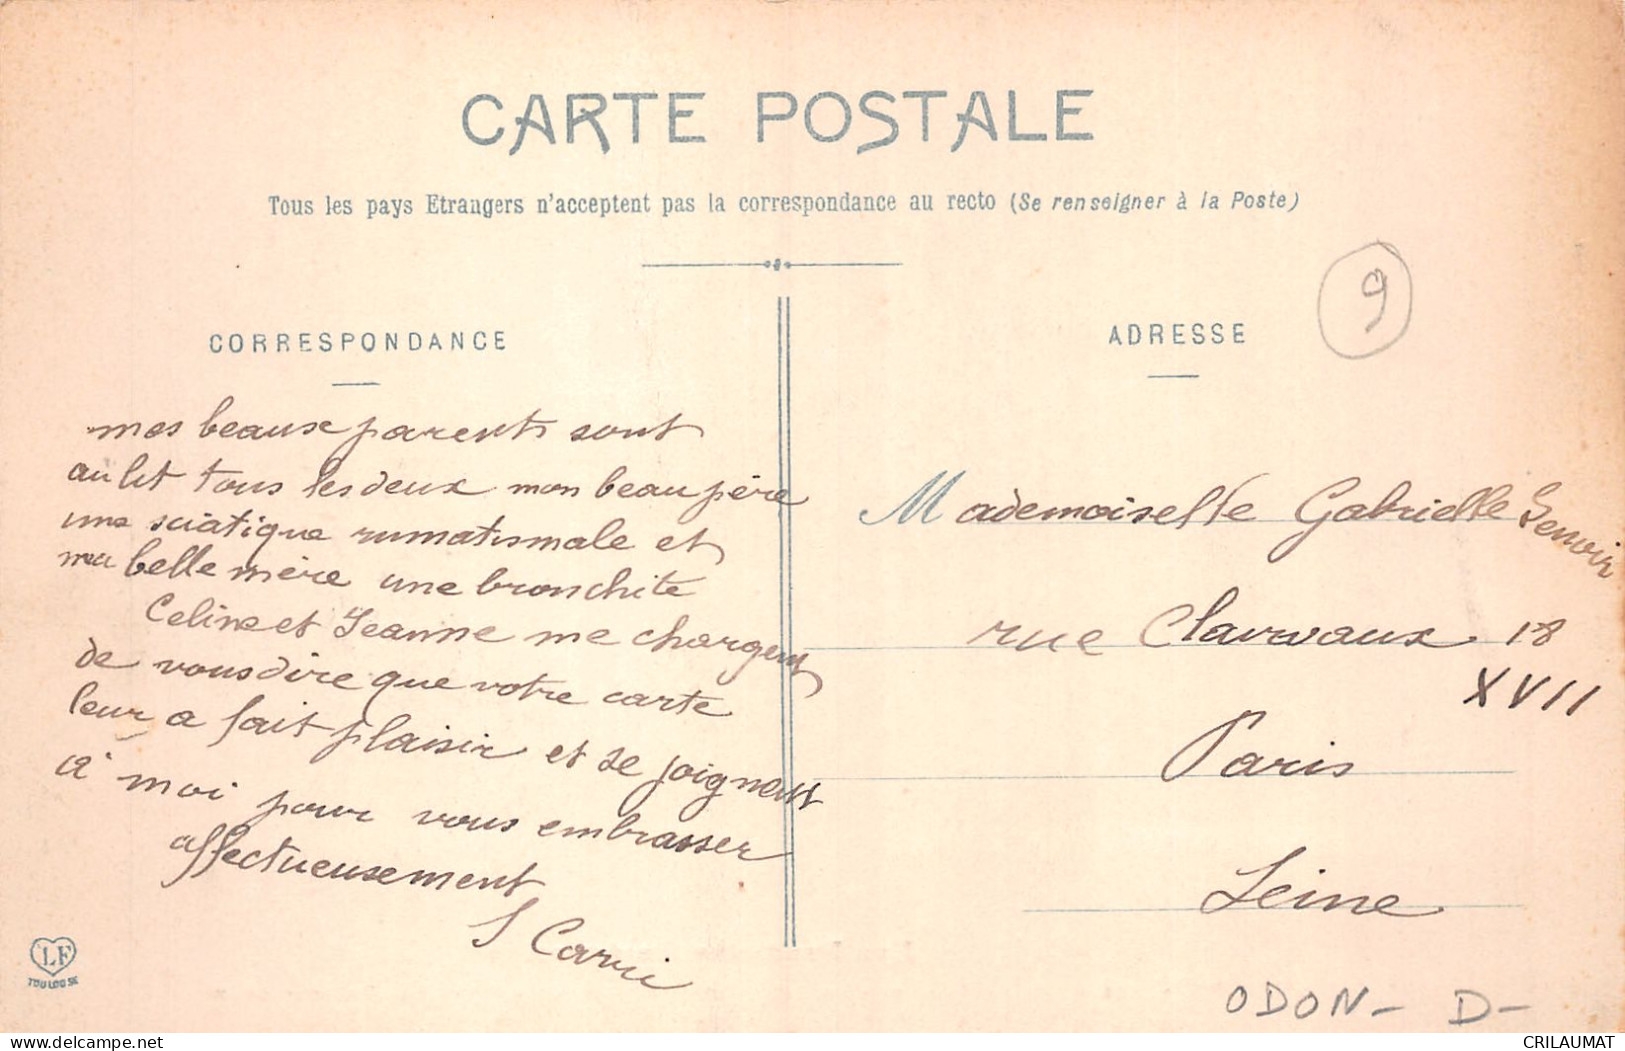 CARTE POSTALE
Tous les pays Etrangers n'acceptent pas la correspondance au recto (Se renseigner à la Poste)
CORRESPONDANCE
mes beaux parents sont
au lit tous les deux mon beau père
une sciatique rumatismale et
ma belle mère une bronchite
Celine et Jeanne me chargent
de vous dire que votre carte
leur a fait plaisir et se joignent
à moi pour vous embrasser
affectueusement
LF
TOULOUSE
ADRESSE
9
Mademoiselle Gabrielle
rue Clairvaux 18
XVII
Paris
Seine
ODON - D -
CRILAUMAT